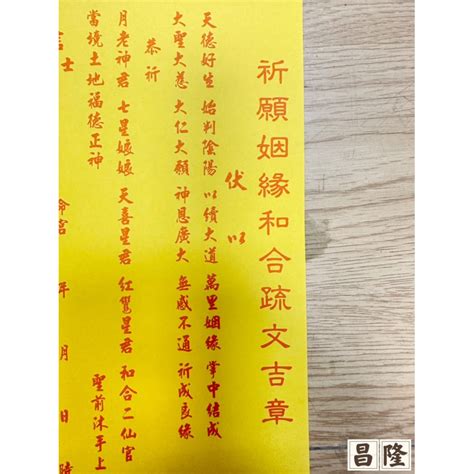 祈願姻緣和合疏文吉章
伏以
天德好生 始判陰陽 以續大道 萬里姻緣 掌中結成
大聖大慈 大仁大願 神恩廣大 無感不通 祈成良緣
恭祈
月老神君 七星娘娘 天喜星君 紅鸞星君 和合二仙官
當境土地福德正神 聖前沐手上
信士 命宮 年 月 日
昌隆